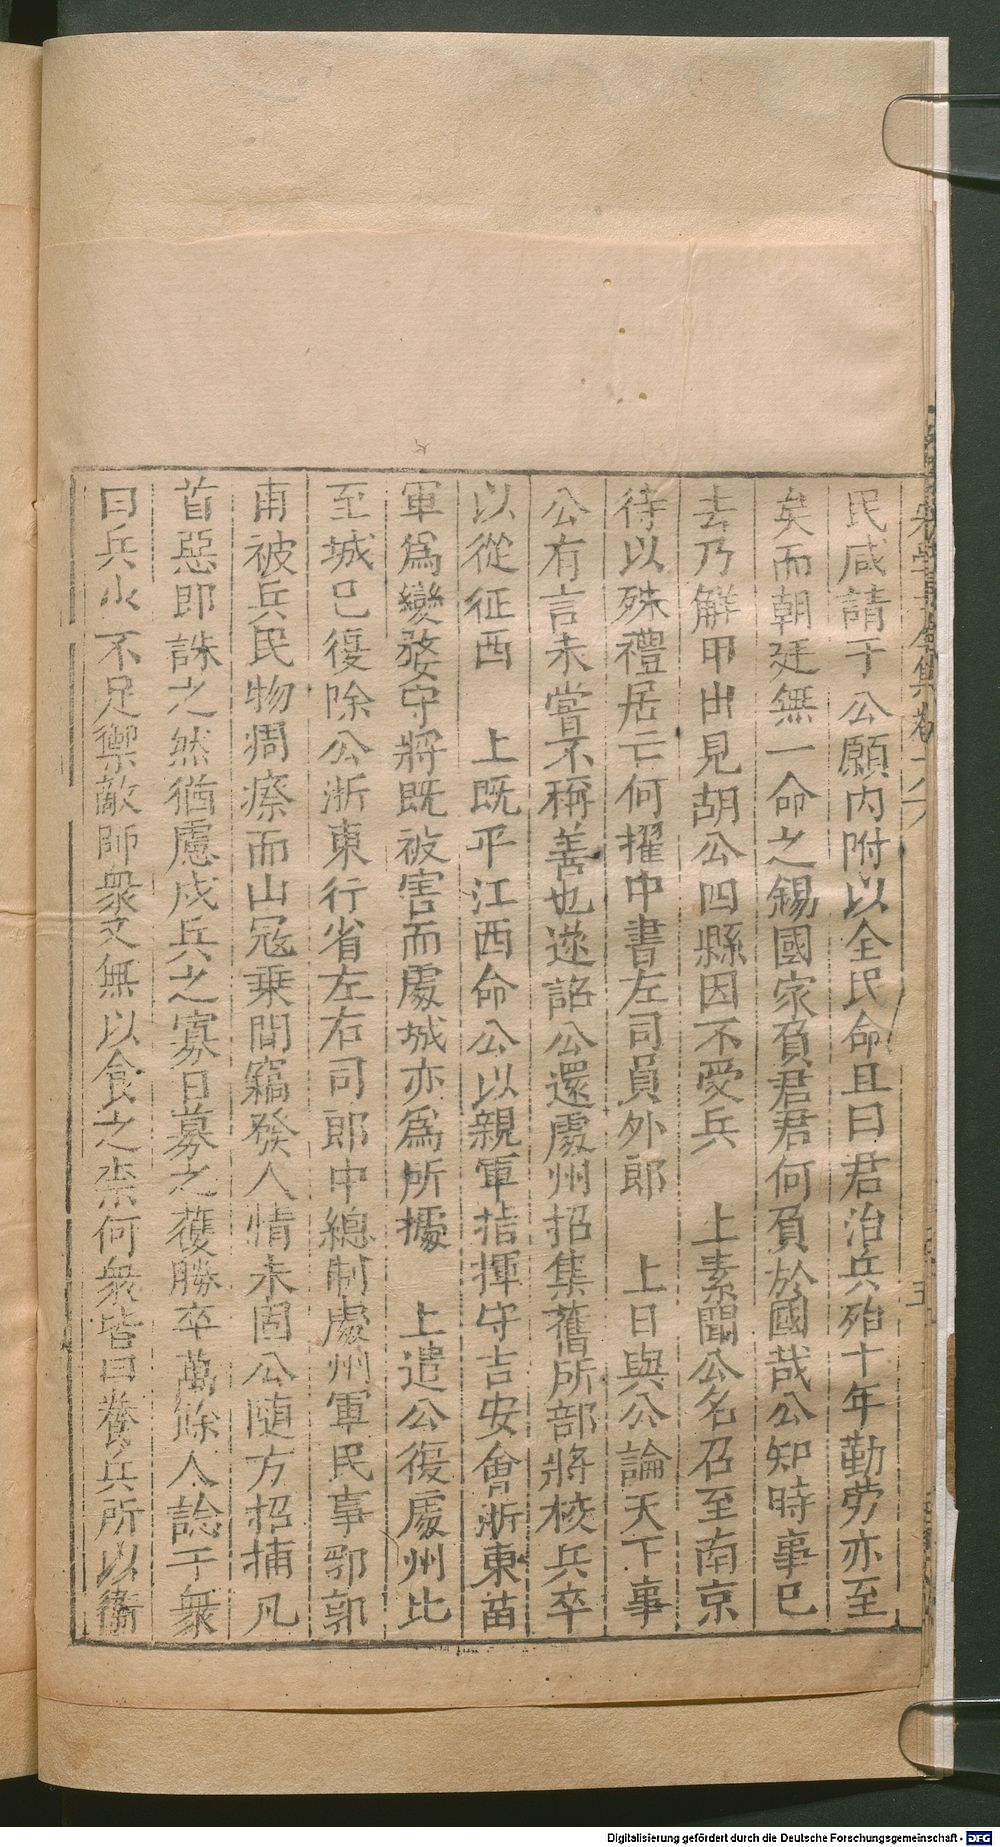 民咸請于公願内附以全民命且曰君治兵殆十年勤勞亦至
矣而朝廷無一命之錫國家負君君何負於國哉公知時事已
去乃解甲出見胡公四縣因不受兵　上素聞公名召至南京
待以殊禮居亡何擢中書左司員外郎　上日與公論天下事
公有言未嘗不稱善也遂詔公還處州招集舊所部將校兵卒
以從征西　上既平江西命公以親軍指揮守吉安會浙東苗
軍爲變婺守將既被害而處城亦爲所據　上遣公復處州比
至城已復除公浙東行省左右司郎中總制處州軍民事郛郭
甫被兵民物凋瘵而山寇乗間竊發人情未固公随方招捕凡
首惡即誅之然猶慮戍兵之寡日募之獲勝卒萬餘人諗于衆
曰兵少不足禦敵師衆又無以食之柰何衆皆曰養兵所以衛
Digitalisierung gefördert durch die Deutsche Forschungsgemeinschaft - DFG